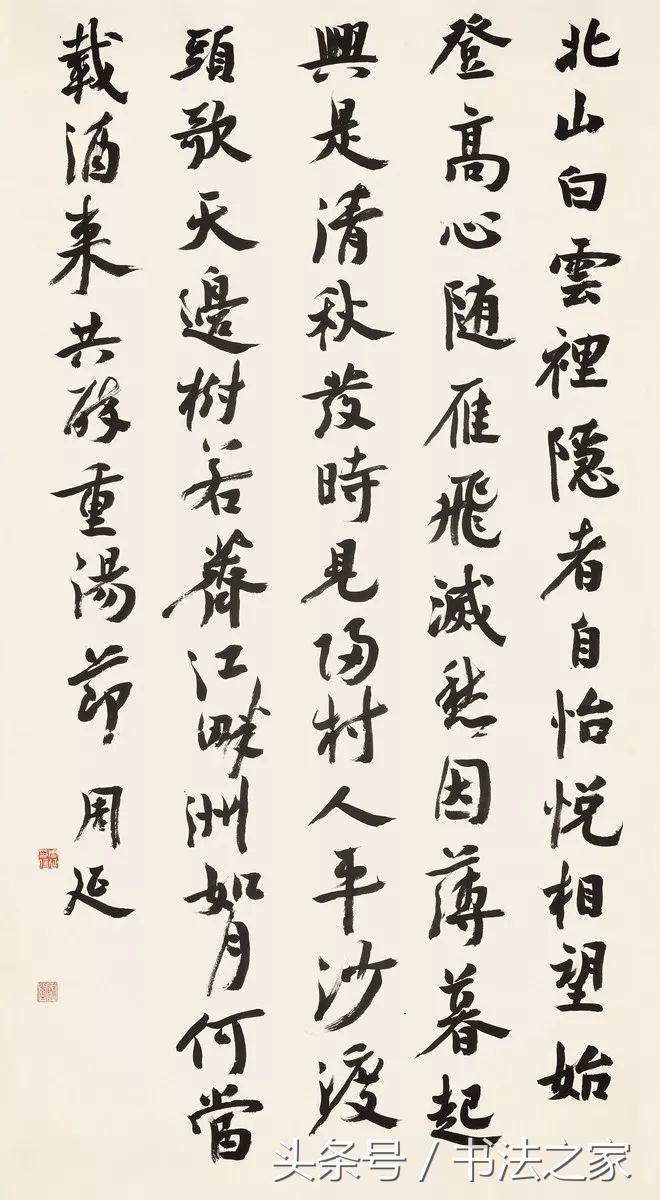 北山白雲裡隱者自怡悅相望始
登高心随雁飛滅愁因薄暮起
興是清秋發時見歸村人平沙渡
頭歌天邊樹若薺江畔洲如月何當
載酒来共醉重湯節
周延
头条号 / 书法之家